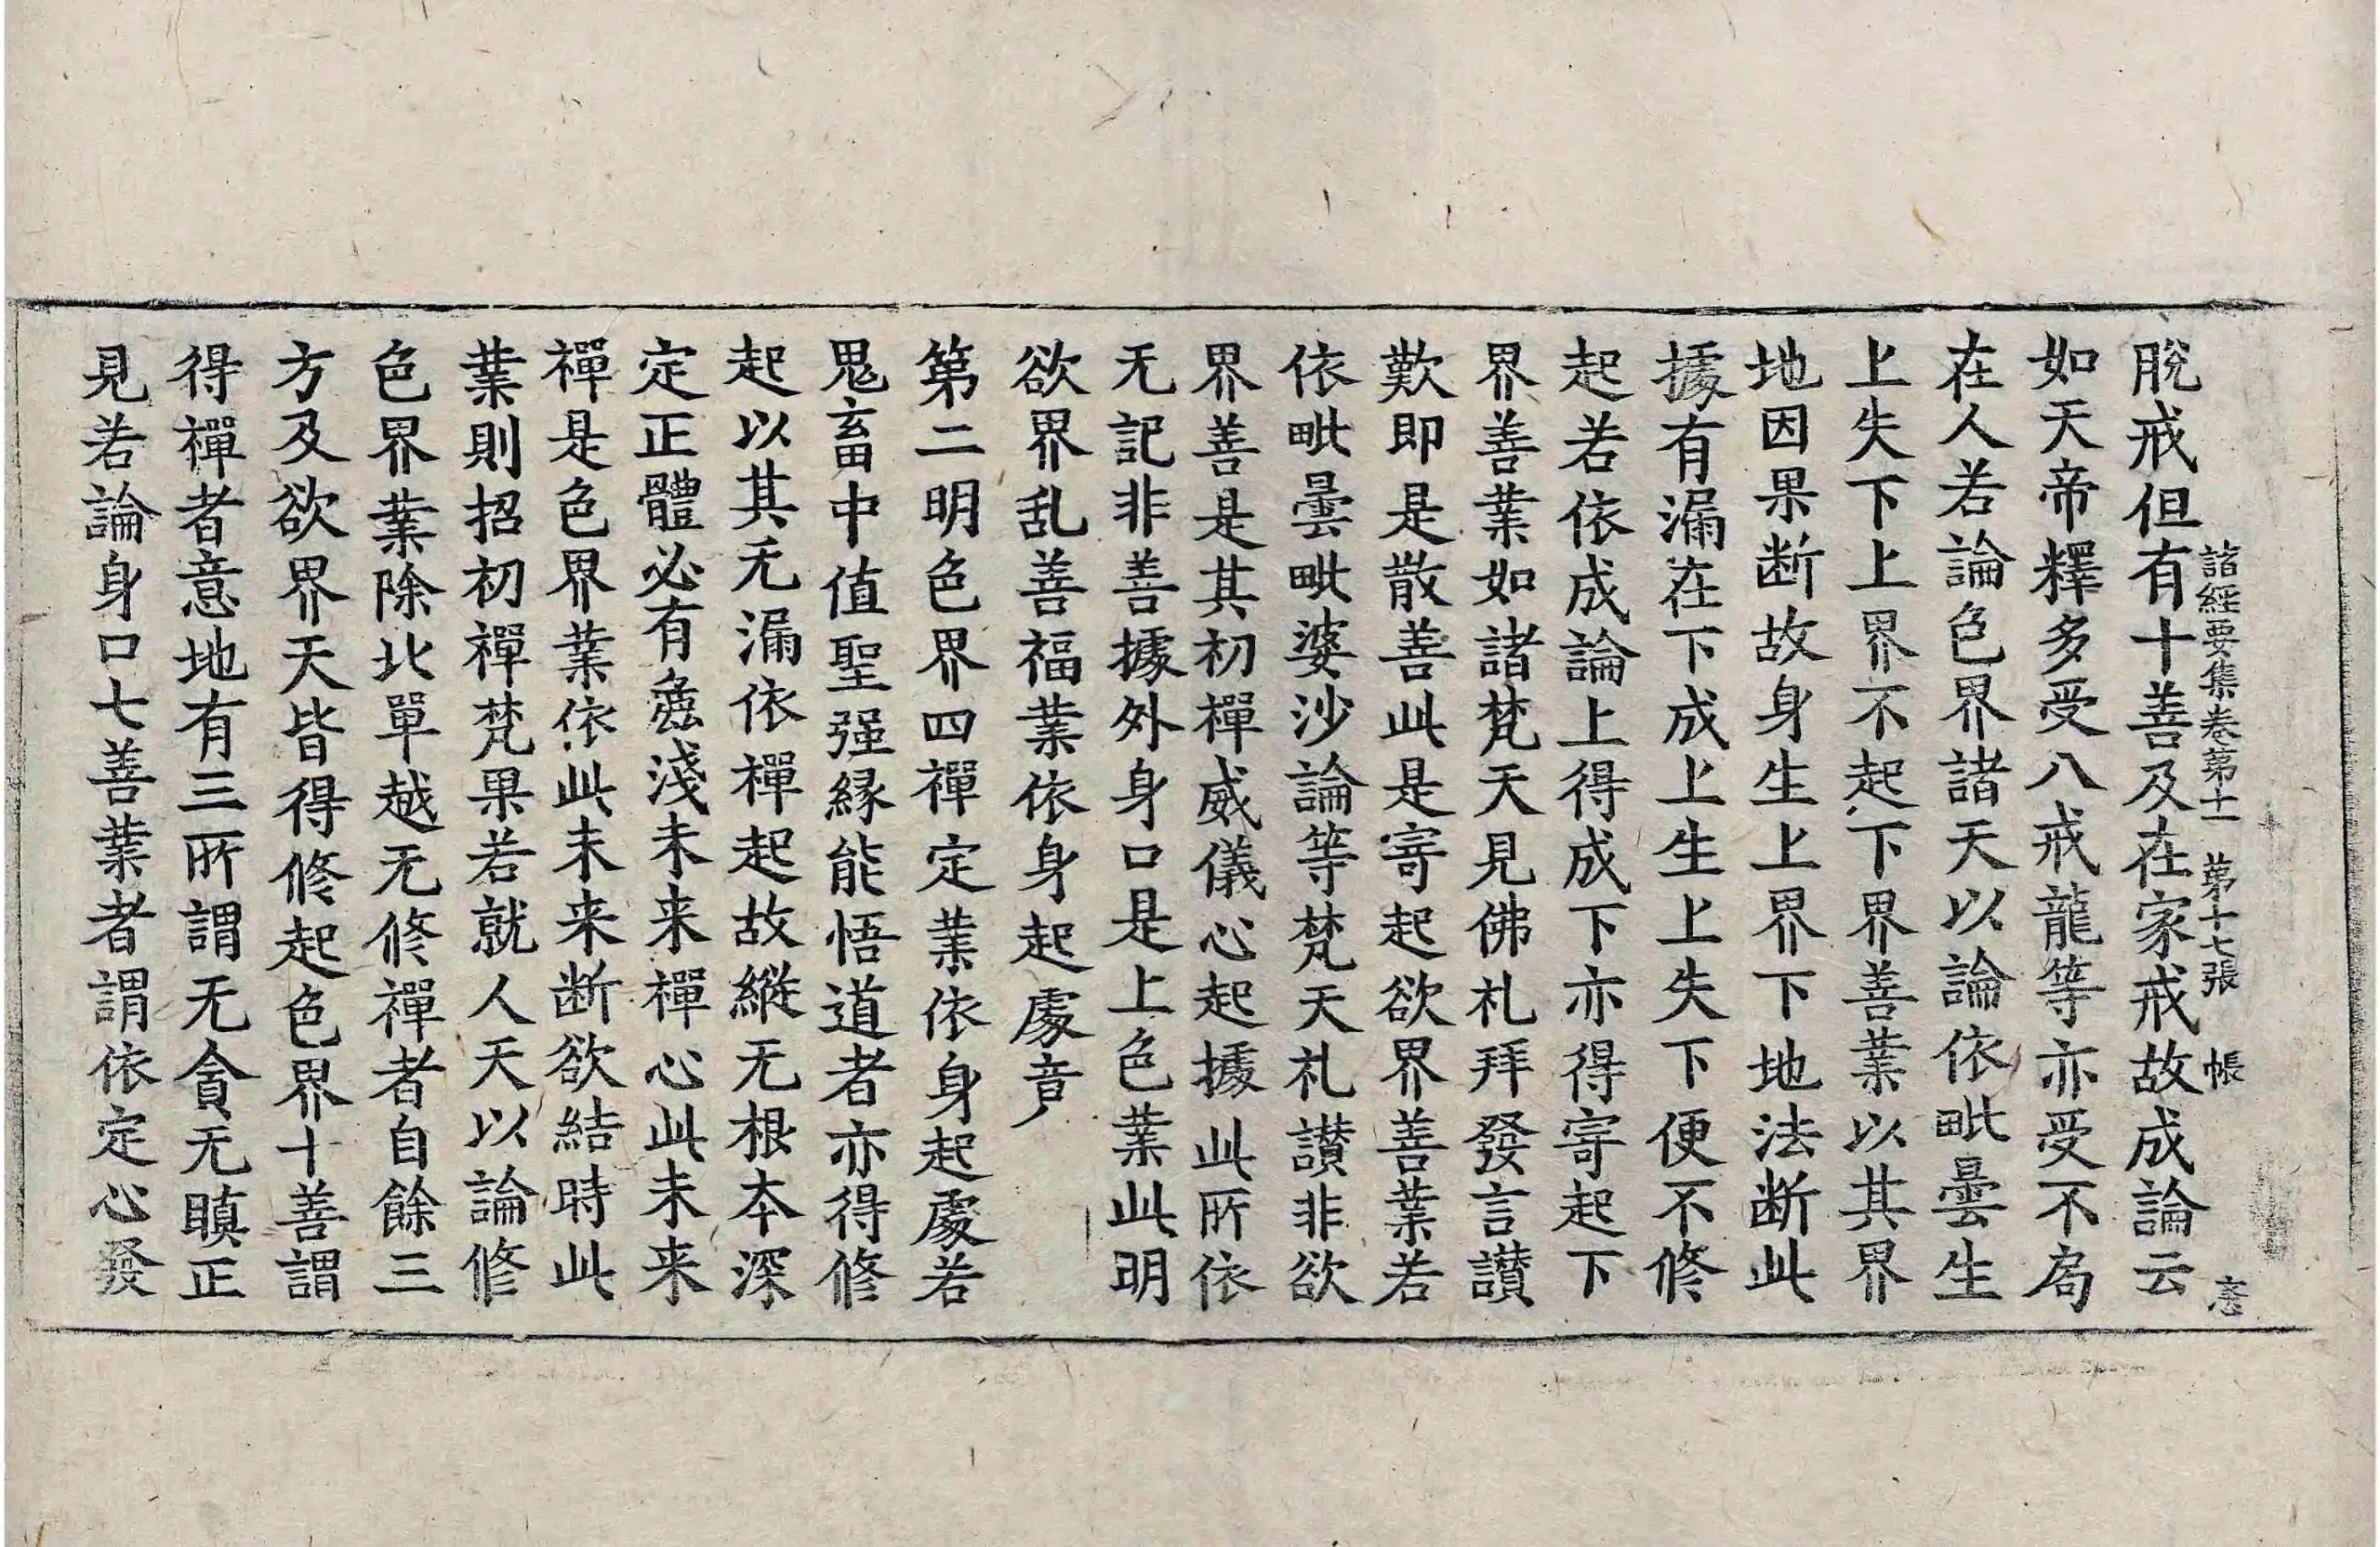 諸經要集卷第十一 第十七張 帳
脫戒但有十善及在家戒故成論云
如天帝釋多受八戒龍等亦受不局
在人若論色界諸天以論依毗曇生
上失下上界不起下界善業以其界
地因果断故身生上界下地法断此
據有漏在下成上生上失下便不修
起若依成論上得成下亦得寄起下
界善業如諸梵天見佛礼拜發言讃
歎即是散善此是寄起欲界善業若
依毗曇毗婆沙論等梵天礼讃非欲
界善是其初禪威儀心起據此所依
无記非善據外身口是上色業此明
欲界乱善福業依身起處竟
第二明色界四禪定業依身起處若
鬼畜中值聖强縁能悟道者亦得修
起以其无漏依禪起故縱无根本深
定正體必有麁淺未来禪心此未来
禪是色界業依此未来断欲結時此
業則招初禪梵果若就人天以論修
色界業除北單越无修禪者自餘三
方及欲界天皆得修起色界十善謂
得禪者意地有三所謂无貪无瞋正
見若論身口七善業者謂依定心發